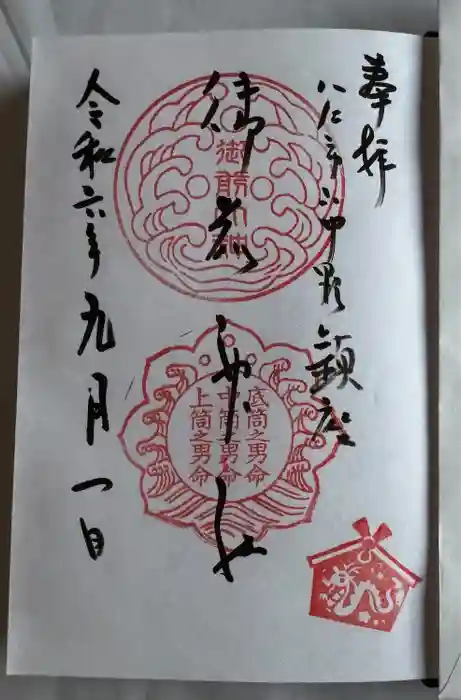 奉拝
八戸市沖野鎮座
御前神社
令和六年九月一日
御前神社
底筒之男命
中筒之男命
上筒之男命